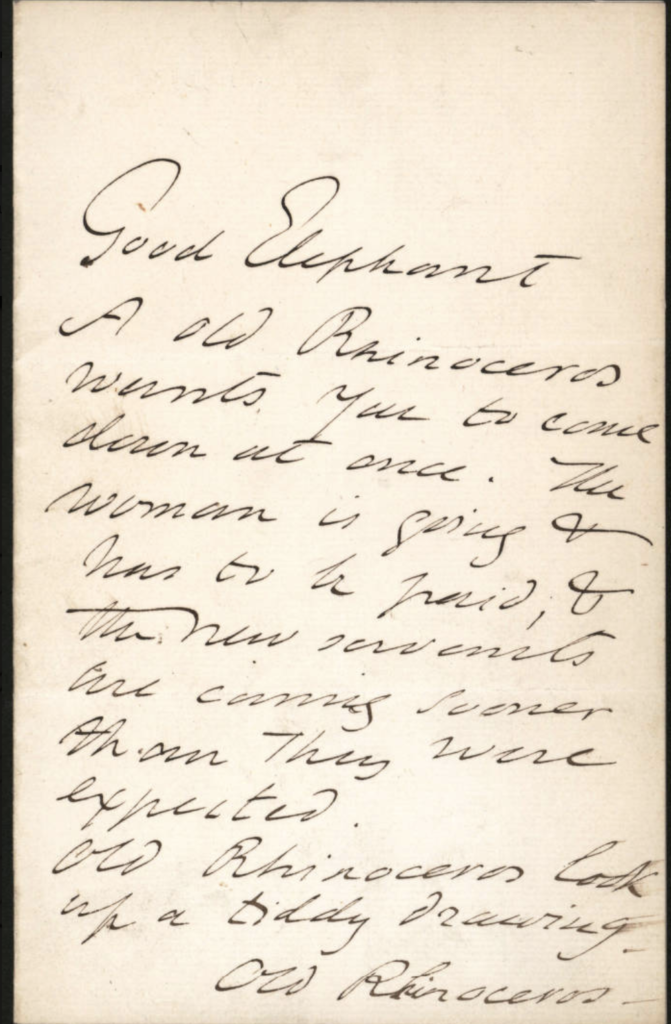 Good Elephant
A old Rhinoceros
wants you to come
down at once. The
woman is going &
has to be paid, &
the new servants
are coming sooner
than they were
expected.
Old Rhinoceros look
up a tiddy drawing.
Old Rhinoceros—